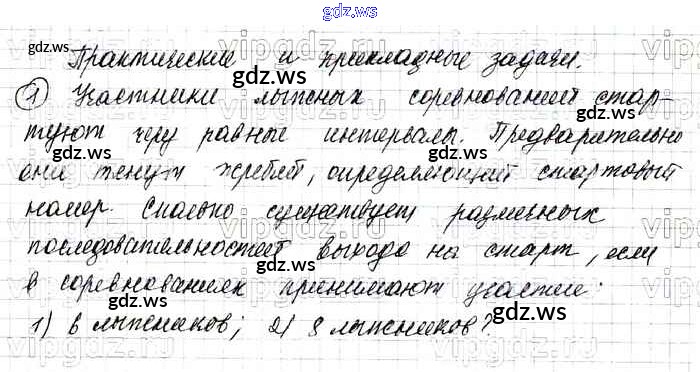 gdz.ws
gdz.ws
Практические и прикладные задачи.
gdz.ws
1 Участники лыжных соревнований стар-
туют через равные интервалы. Предварительно
gdz.ws gdz.ws
они тянут жребий, определяющий стартовый
номер. Сколько существует различных
gdz.ws
последовательностей выхода на старт, если
gdz.ws gdz.ws
в соревнованиях принимают участие:
1) 6 лыжников; 2) 8 лыжников?
gdz.ws